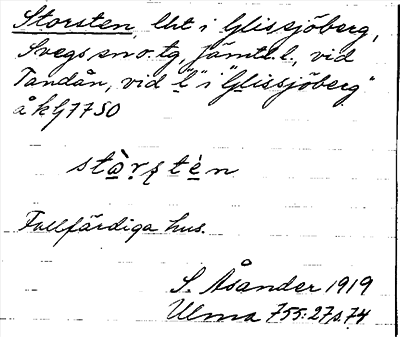 Storsten, lht i Glissjöberg,
Svegs sn o. tg, Jämtl. l., vid
Tandån, vid "l" i "Glissjöberg"
å kbl 7750
Fallfärdiga hus.
S. Åsander 1919
Ulma 755:27 s. 74